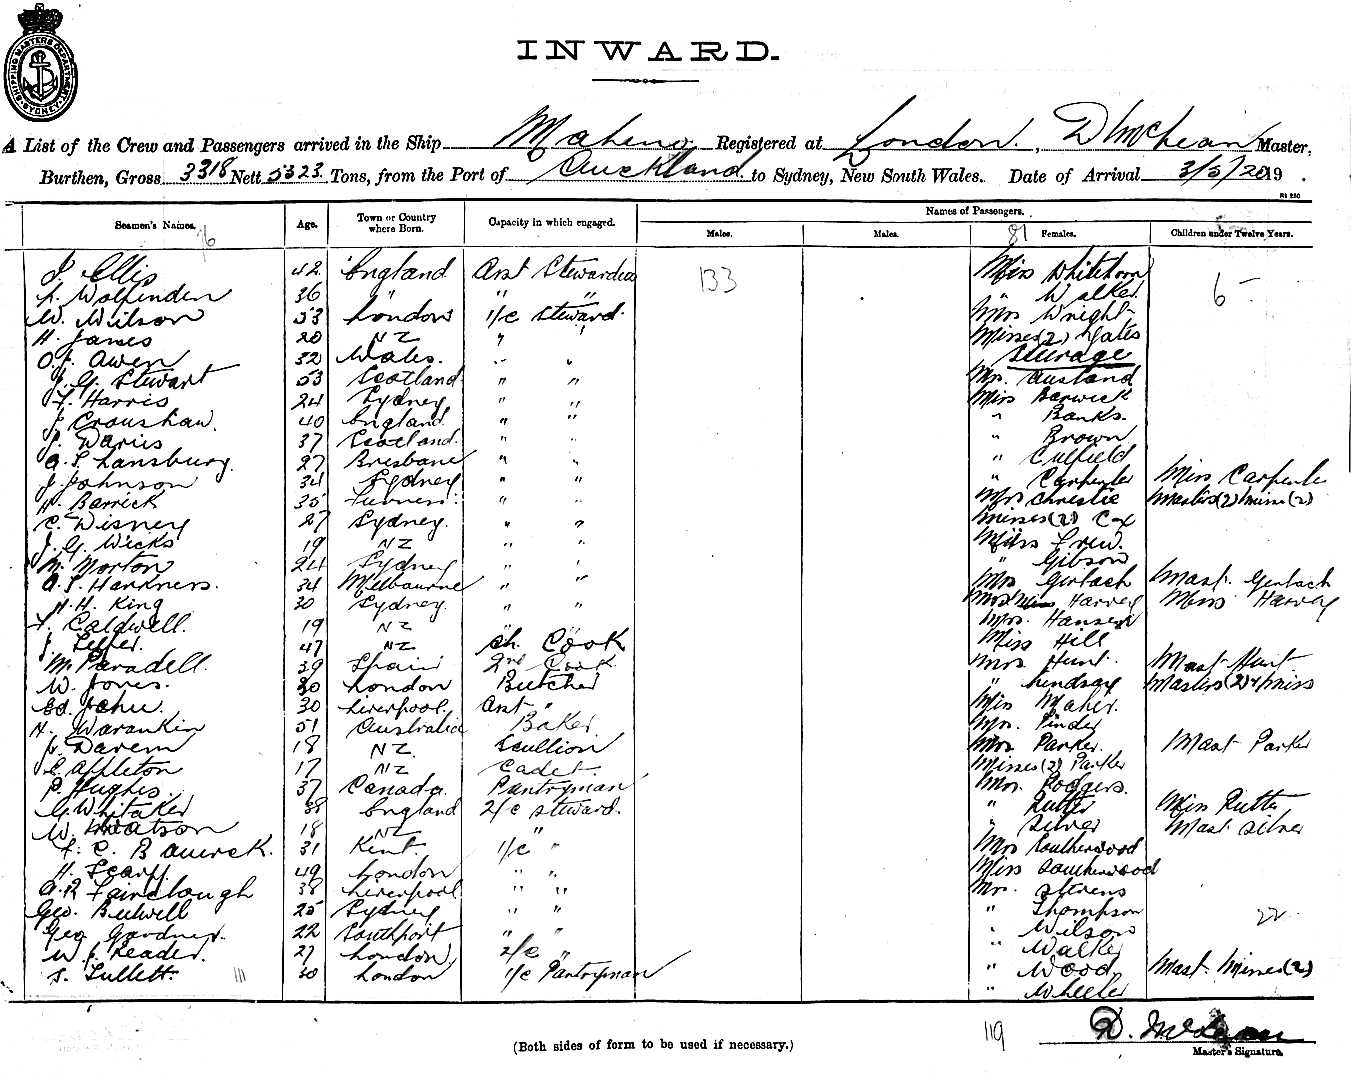 SHIPPING MASTERS DEPARTMENT SYDNEY
INWARD.
A List of the Crew and Passengers arrived in the Ship Maheno Registered at London, D McLean Master,
Burthen, Gross 3318 Nett 5323 Tons, from the Port of Auckland to Sydney, New South Wales. Date of Arrival 3/5/20 19 .
Names of Passengers.
Seamen's Names. Age. Town or Country where Born. Capacity in which engaged. Males. Males. Females. Children under Twelve Years.
76 81
J. Ellis 42 England Asst Stewardess 133 Miss Whitehorn 6
L. Wolfenden 36 " " " " Walker
W. Wilson 53 London 1/c Steward Mrs Wright
H. James 20 NZ " " Misses (2) Yates
O. J. Owen 32 Wales. " " Steerage
J. G. Stewart 53 Scotland " " Mrs. Ausland
F. Harris 24 Sydney " " Miss Barwick
J. Cronshaw. 40 England " " " Banks.
J. Darius 37 Scotland. " " " Brown
A. S. Lansbury. 27 Brisbane " " "
J. Johnson 34 Sydney " " " Carpenter Miss Carpenter
H. Barrick 35 " " Mrs Christie Masters (2) Misse (2)
C. Disney 27 Sydney. " " Misses (2) Cox
J. G. Wicks 19 NZ " " Miss Frew.
M. Morton 24 Sydney " " " Gibson
A. S. Harkness. 34 Melbourne " " Mrs Gerlach Mast. Gerlach
H. H. King 30 Sydney. " " Harvey Miss Harvey
F. Caldwell. 19 NZ " " Mrs. Hansen
J. 47 NZ Ch. Cook Miss Hill
M. Paradell 39 Spain 2nd Cook Mrs Hunt. Mast Hunt
W. Jones. 30 London Butcher " Lindsay Masters (2) + Miss
Ed. John. 30 Liverpool. Asst " Miss Maher.
H. Warankin 51 Australia Baker. Mrs. Pinder
J. Darem 18 NZ Scullion Mrs Parker. Mast Parker
C. Appleton 17 NZ Cadet. Misses (2) Parker
P. Hughes. 37 Canada. Pantryman Mrs. Rodgers.
G. Whitaker 38 England 2/c Steward. " Rutty Miss Rutty
W. Watson 18 NZ " " Silver Mast Silver
F. C. 31 Kent. 1/c " Mrs Southerwood
H. Scarff 49 London " " Miss Southerwood
A. R. Fairclough 38 Liverpool " " Mrs. Stevens
Geo. Bulwell 25 Sydney " " " Thompson 22
Geo Gardner. 22 Southport " " " Wilson
W. J. Reader. 27 London 2/c " " Walker
S. Tullett. 111 20 London 1/c Pantryman " Wood Mast Misses (2)
" Wheeler
119
D. McLean
(Both sides of form to be used if necessary.)
Master's Signature.